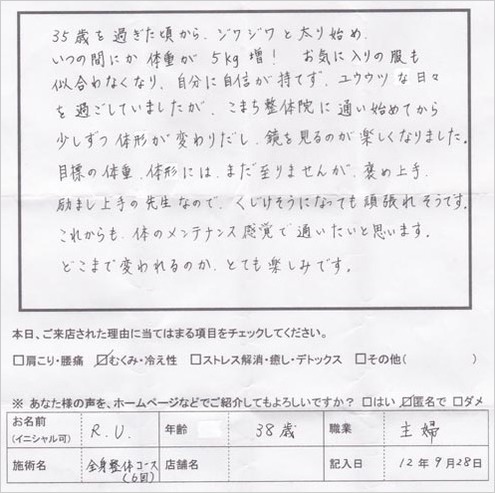 35歳を過ぎた頃から、ジワジワと太り始め、
いつの間にか体重が5kg増! お気に入りの服も
似合わなくなり、自分に自信が持てず、ユウウツな日々
を過ごしていましたが、こまち整体院に通い始めてから
少しずつ体形が変わりだし、鏡を見るのが楽しくなりました。
目標の体重、体形には、まだ至りませんが、褒め上手、
励まし上手の先生なので、くじけそうになっても頑張れそうです。
これからも、体のメンテナンス感覚で通いたいと思います。
どこまで変われるのか、とても楽しみです。
本日、ご来店された理由に当てはまる項目をチェックしてください。
□肩こり・腰痛 ☑むくみ・冷え性 □ストレス解消・癒し・デトックス □その他( )
※ あなた様の声を、ホームページなどでご紹介してもよろしいですか? □はい ☑匿名で □ダメ
お名前(イニシャル可) R.U. 年齢 38歳 職業 主婦
施術名 全身整体コース(6回) 店舗名 記入日 12年9月28日